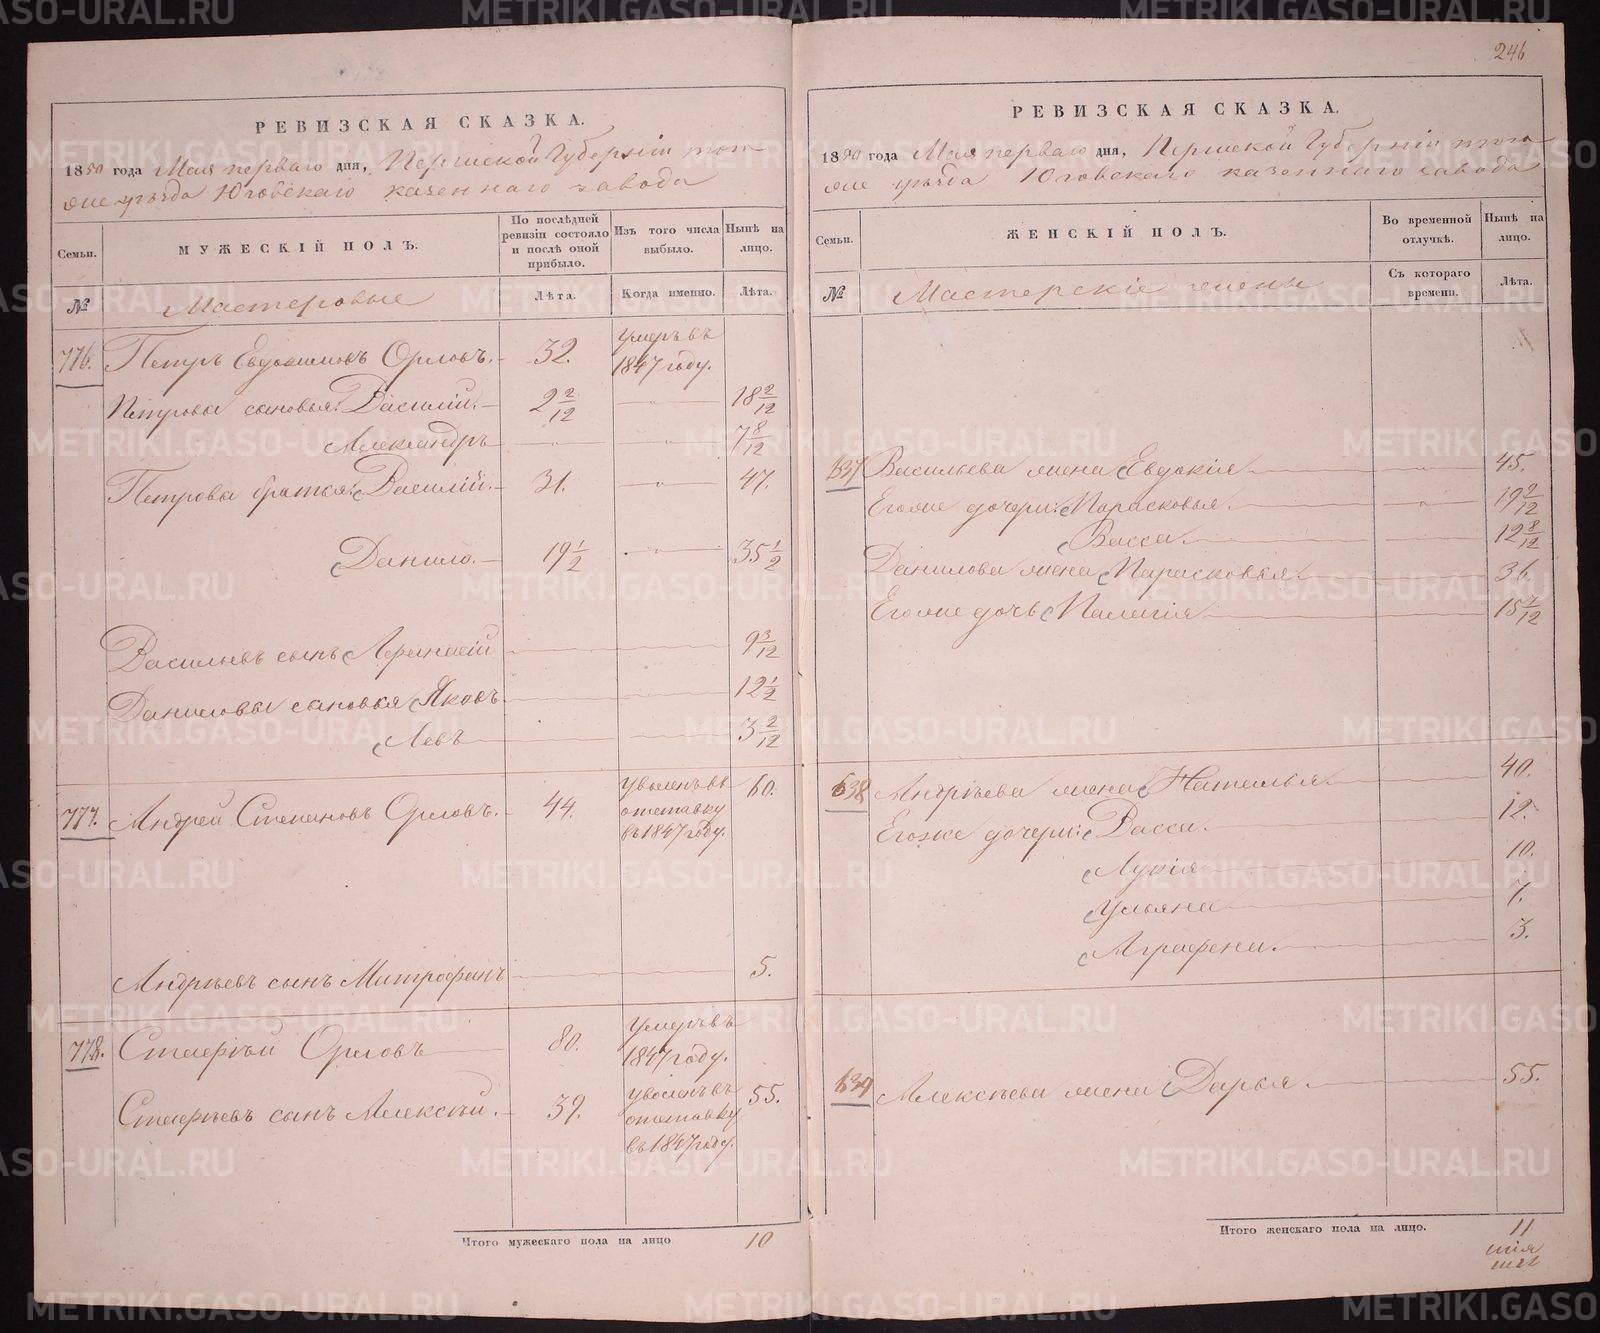 246
РЕВИЗСКАЯ СКАЗКА.
1850 года Мая перваго дня, Пермской Губерніи того
же уѣзда Юговскаго казеннаго завода
Семьи.
МУЖЕСКІЙ ПОЛЪ.
По послѣдней ревизіи состояло и послѣ оной прибыло.
Изъ того числа выбыло.
Нынѣ на лицо.
№
Мастеровые
Лѣта.
Когда именно.
Лѣта.
776. Петръ Евдокимовъ Орловъ. 32. Умеръ въ 1847 году.
Петровы сыновья: Василій. 2 2/12 18 2/12
Александръ 7 8/12
Петровы братья: Василій. 31. 47.
Данило. 19 1/2 35 1/2
Васильевъ сынъ Афанасій 9 3/12
Даниловы сыновья Яковъ. 12 1/2
Левъ 3 2/12
777. Андрей Степановъ Орловъ. 44. Уволенъ въ отставку въ 1847 году. 60.
Андрѣевъ сынъ Митрофанъ 5.
778. Орловъ 80. Умеръ въ 1847 году.
сынъ Алексѣй. 39. Уволенъ въ отставку въ 1847 году. 55.
Итого мужескаго пола на лицо 10
РЕВИЗСКАЯ СКАЗКА.
1850 года Мая перваго дня, Пермской Губерніи того
же уѣзда Юговскаго казеннаго завода
Семьи.
ЖЕНСКІЙ ПОЛЪ.
Во временной отлучкѣ.
Нынѣ на лицо.
№
Мастерскіе жены
Съ котораго времени.
Лѣта.
637 Васильева жена Евдокія 45.
Егоже дочери: Парасковья. 19 2/12
Васса. 12 8/12
Данилова жена Парасковья. 36.
Егоже дочь Палагія 15 7/12
638 Андрѣева жена Наталья. 40.
Егоже дочери: Васса. 12.
Лукія 10.
Ульяна 7.
Аграфена. 3.
639 Алексѣева жена Дарья. 55.
Итого женскаго пола на лицо. 11
METRIKI.GASO-URAL.RU